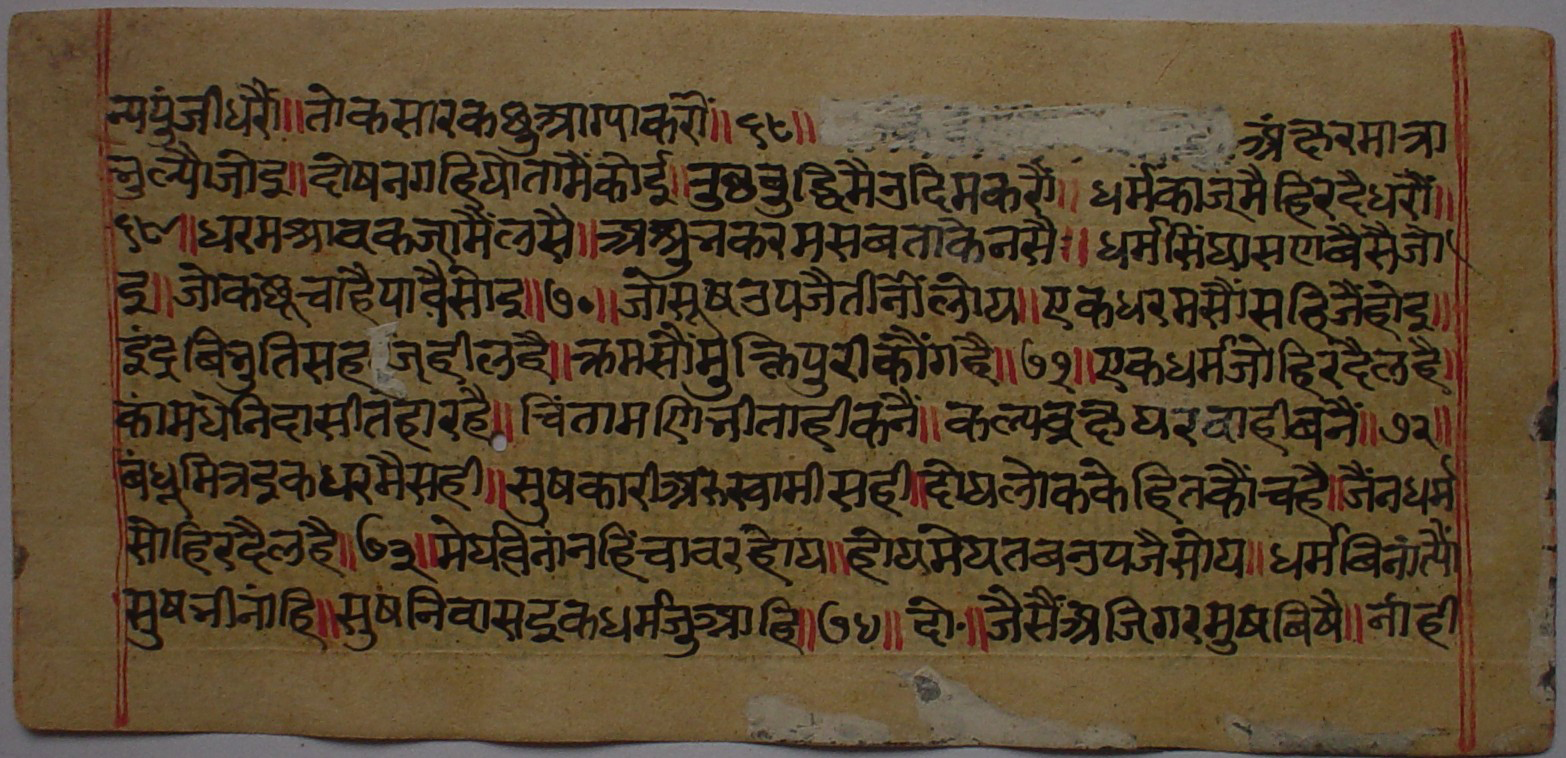 न्यपुंजीधरौं॥ तोकसारकछुआग्याकरौं॥ ६८॥ अंछरमात्रा
भुल्यौजोइ॥ दोषनगहियोतामैंकोई॥ तुछबुद्धिमैउदिमकरौं॥ धर्मकाजमैहिरदैधरौं॥
६९॥ धरमश्रावकजामैंलसै॥ अश्रुभकरमसबताकैनसै॥ धर्मसिंघासणबैसैजो
इ॥ जोकछूचाहैपावैसोइ॥ ७०॥ जोसुषउपजैतीनौंलोय॥ एकधरमसौंसहिजैंहोइ॥
इंद्रबिभुतिसहजहीलहै॥ क्रमसौंमुक्तिपुरीकौंगहै॥ ७१॥ एकधर्मजोहिरदैलहै॥
कांमधेनिदासीतहारहै॥ चिंतामणिभीताहीकनैं॥ कल्पवृछघरवाहीबनैं॥ ७२॥
बंधूमित्रइकधरमैसही॥ सुषकारीअरुस्वामीसही॥ दोयलोककेहितकौंचहै॥ जैंनधर्म
सोहिरदैलहै॥ ७३॥ मेघविनांनहिंचावरहोय॥ होयमेघतबउपजैसोय॥ धर्मबिनांत्यौं
सुषभीनांहि॥ सुषनिवासइकधर्मजुआहि॥ ७४॥ दो॰॥ जैसैंअजिगरमुषबिषै॥ नांही